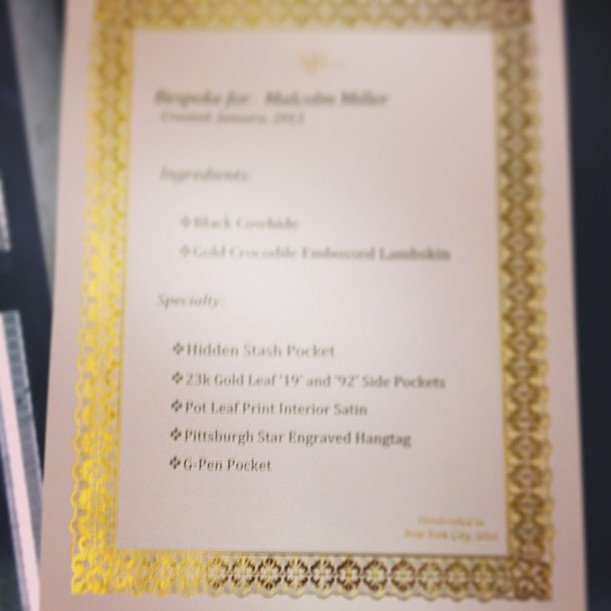 Bespoke for: Malcolm Miller
Created: January, 2013
Ingredients:
❖Black Cowhide
❖Gold Crocodile Embossed Lambskin
Specialty:
❖Hidden Stash Pocket
❖23k Gold Leaf '19' and '92' Side Pockets
❖Pot Leaf Print Interior Satin
❖Pittsburgh Star Engraved Hangtag
❖G-Pen Pocket
Handcrafted in
New York City, USA